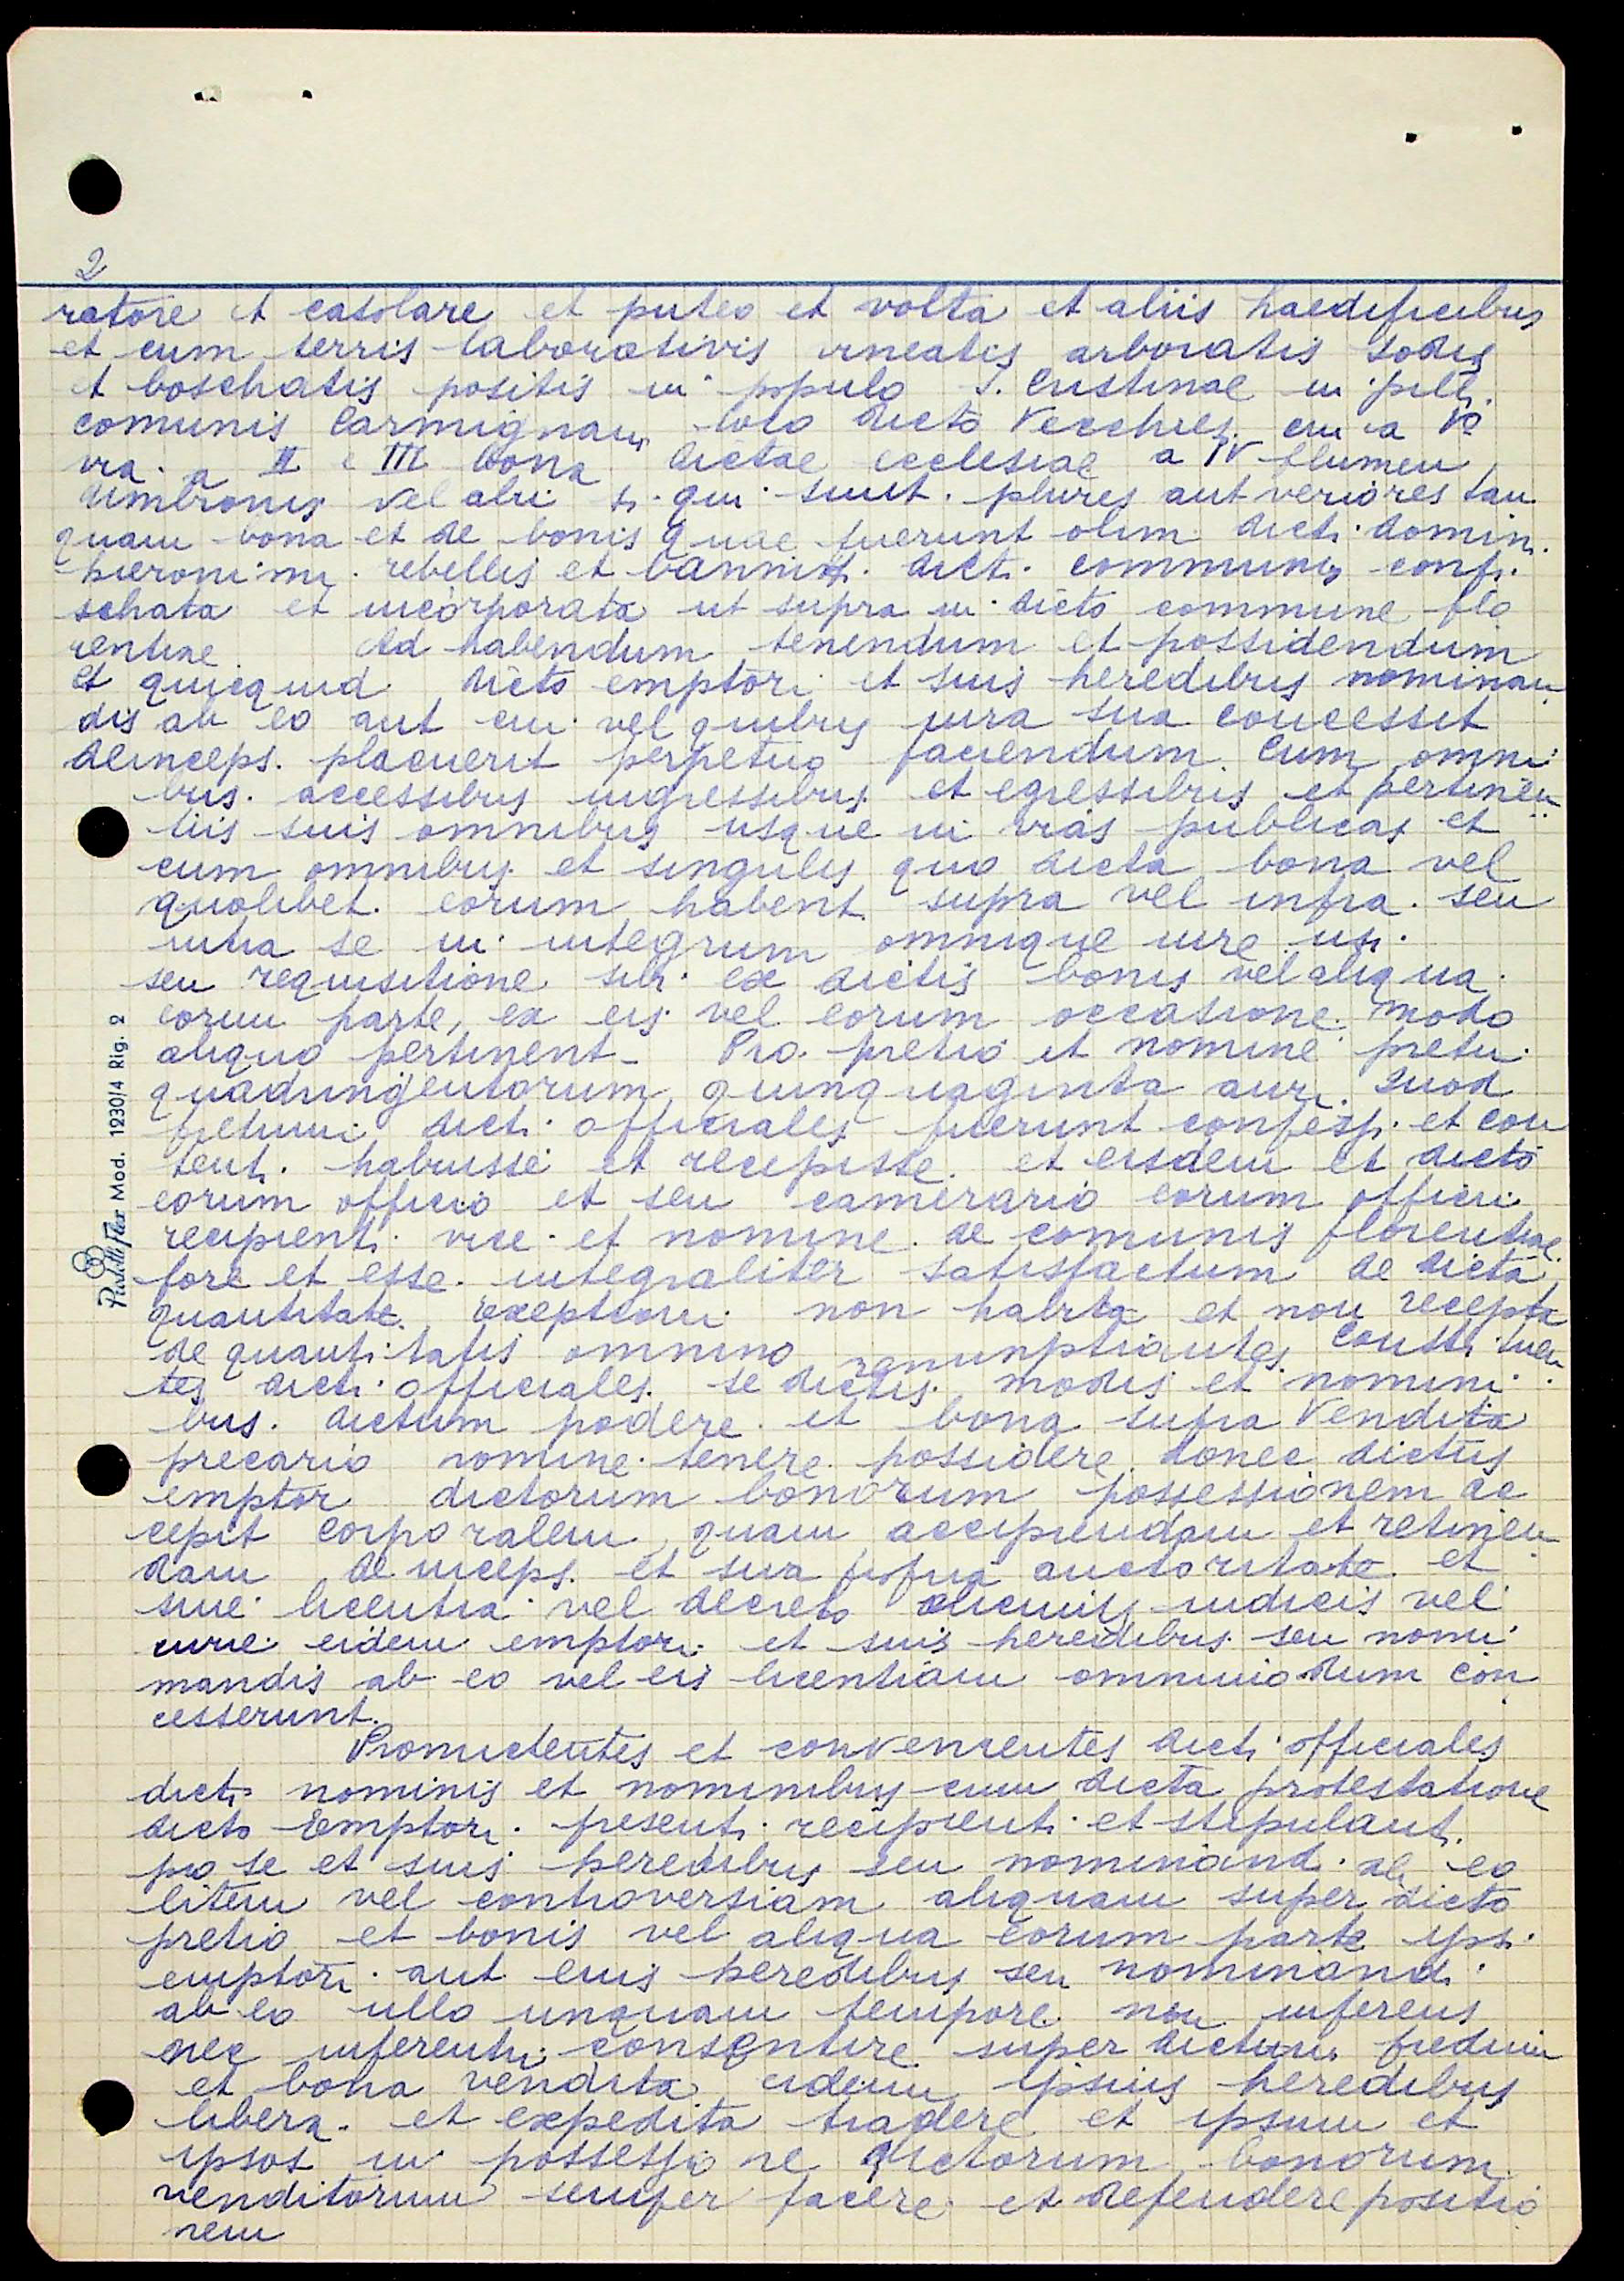 2
ratore et casolare et puteo et volta et aliis haedificibus
et cum terris laborativis vineatis arboratis sodis
et boschatis positis in populo S. Cristinae in pill.
comunis Carmignani loco dicto Vecchies cui a Iº
via. a II e III bona dictae ecclesiae a IV flumen
Umbronis vel alii si qui sunt plures aut veriores tan
quam bona et de bonis quae fuerunt olim dicti domini
hieronimi rebellis et banniti dicti communis confi
schata et incorporata ut supra in dicto commune flo
rentine. Ad habendum tenendum et possidendum
et quicquid dicto emptori et suis heredibus nominan
dis ab eo aut cui vel quibus iura sua concessit
deinceps. placuerit perpetuo faciendum. Cum omni
bus. accessibus ingressibus et egressibus et pertinen
tiis suis omnibus usque in vias publicas et
cum omnibus et singulis quo dicta bona vel
quolibet. eorum habent supra vel infra. seu
intra se in integrum omnique iure usi.
seu requisitione sibi ex dictis bonis vel aliqua
eorum parte, ex eis vel eorum occasione modo
aliquo pertinent- Pro pretio et nomine pretii
quadringentorum quinquaginta auri. Quod
pretium dicti officiales fuerunt confessi et con
tenti habuisse et recepisse. et eisdem et dicto
eorum officio et seu camerario eorum officii
recipienti vice et nomine de comunis florentiae
fore et esse. integraliter satisfactum de dicta
quantitate. exceptioni non habita et non recepta
de quantitatis omnino renumptiantes. Constituen
tes dicti officiales se dictis. modis et nomini
bus. dictum podere et bona supra vendita
precario nomine tenere possidere donec dictus
emptor dictorum bonorum possessionem ac
cepit corporalem quam accipiendam et retinen
dam deinceps. et sua propria auctoritate et
sine licentia vel decreto alicuius iudicis vel
curie eidem emptori et suis heredibus seu nomi
mandis ab eo vel eis licentiam omnimodum con
cesserunt.
Promictentes et convenientes dicti officiales
dicti nominis et nominibus cum dicta protestatione
dicto Emptori. presenti recipienti et stipulanti
pro se et suis heredibus seu nominand. ab eo
litem vel controversiam aliquam super dicto
pretio et bonis vel aliqua eorum parte ipsi
emptori. aut eius heredibus seu nominandi
ab eo ullo unquam tempore non inferens
nec inferenti consentire super dictum predium
et bona vendita eidem ipsius heredibus
libera. et expedita tradere et ipsum et
ipsos in possessione dictorum bonorum
venditorum semper facere et defendere positio
nem
Pustelli Flex Mod. 1230/4 Rig. 2